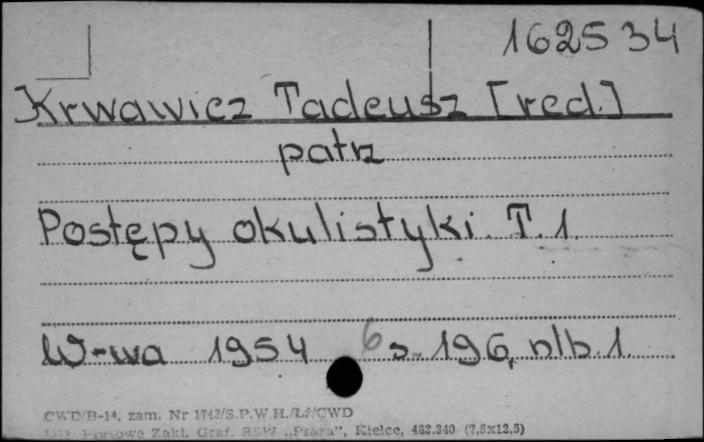 162534
Krwawicz Tadeusz [red.]
patrz
Postępy okulistyki. T. 1.
W-wa 1954 6 s. 196, nlb. 1.
CWD/B-14, zam. Nr 1743/S.P.W.H./Lź/CWD
Prasowe Zakł. Graf. RSW „Prasa", Kielce, 482.340 (7,5x12,5)